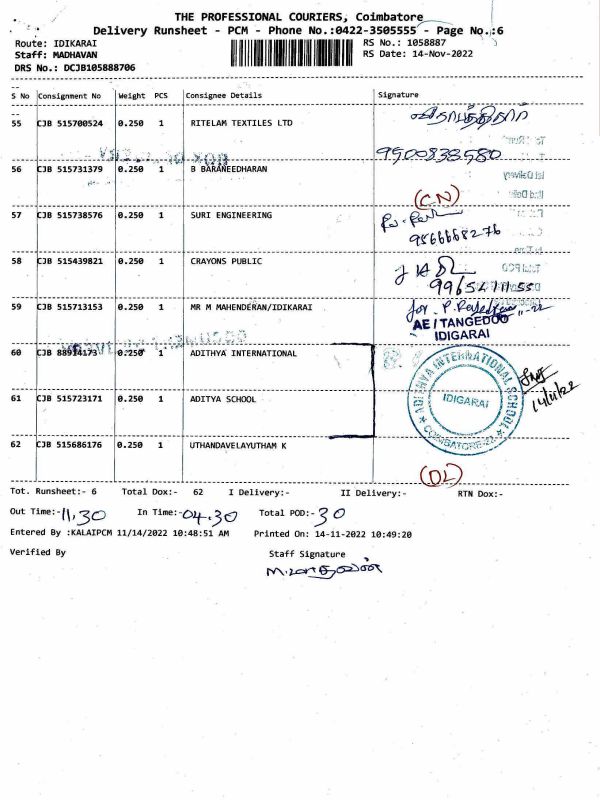 THE PROFESSIONAL COURIERS, Coimbatore
Delivery Runsheet - PCM - Phone No.:0422-3505555 - Page No.:6
Route: IDIKARAI RS No.: 1058887
Staff: MADHAVAN RS Date: 14-Nov-2022
DRS No.: DCJB105888706
S No Consignment No Weight PCS Consignee Details Signature
55 CJB 515700524 0.250 1 RITELAM TEXTILES LTD
9900838580
56 CJB 515731379 0.250 1 B BARANEEDHARAN
(CN)
57 CJB 515738576 0.250 1 SURI ENGINEERING
9566668276
58 CJB 515439821 0.250 1 CRAYONS PUBLIC
59 CJB 515713153 0.250 1 MR M MAHENDERAN/IDIKARAI
AE / TANGEDCO
IDIGARAI
60 CJB 88914173 0.250 1 ADITHYA INTERNATIONAL
ADITHYA INTERNATIONAL SCHOOL
IDIGARAI
COIMBATORE-22
61 CJB 515723171 0.250 1 ADITYA SCHOOL
14/11/22
62 CJB 515686176 0.250 1 UTHANDAVELAYUTHAM K
(DL)
Tot. Runsheet:- 6 Total Dox:- 62 I Delivery:- II Delivery:- RTN Dox:-
Out Time:- 11.30 In Time:- 04.30 Total POD:- 30
Entered By :KALAIPCM 11/14/2022 10:48:51 AM Printed On: 14-11-2022 10:49:20
Verified By Staff Signature